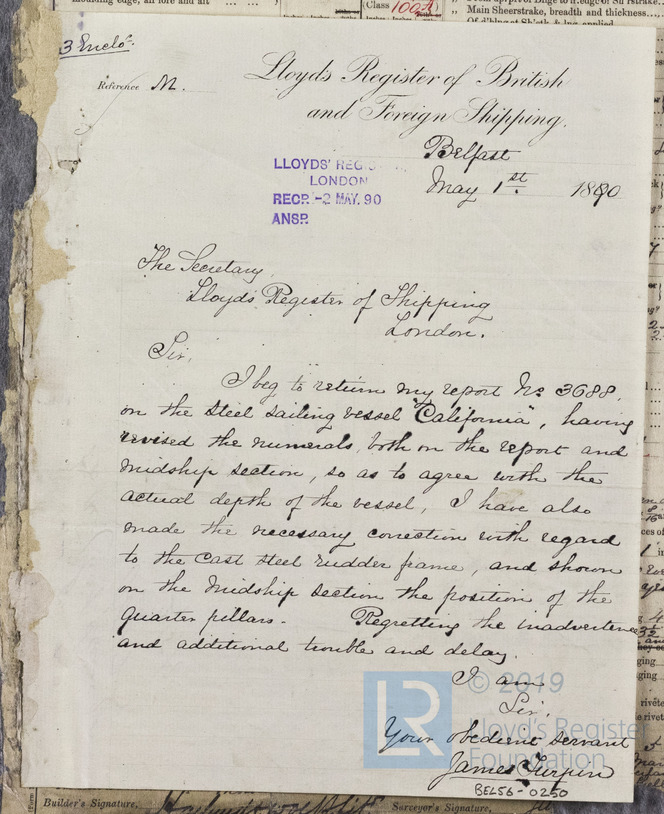 Moulding edge, all fore and aft
(Class 100A)
Main Sheerstrake, breadth and thickness....
3 Enclo.
Reference M.
Lloyds Register of British
and Foreign Shipping.
Belfast
May 1st 1890
LLOYDS' REG
LONDON
RECP. -2 MAY. 90
ANSP.
The Secretary
Lloyds Register of Shipping
London.
Sir,
I beg to return my report No 3688.
on the steel sailing vessel "California", having
revised the numerals, both on the report and
midship section, so as to agree with the
actual depth of the vessel, I have also
made the necessary correction with regard
to the cast steel rudder frame, and shown
on the midship section the position of the
quarter pillars. Regretting the inadvertence
and additional trouble and delay.
I am
Sir,
Your obedient servant
James Turpin
© 2019
LR Lloyd's Register
Foundation
BEL56-0250
Builder's Signature, Surveyor's Signature,